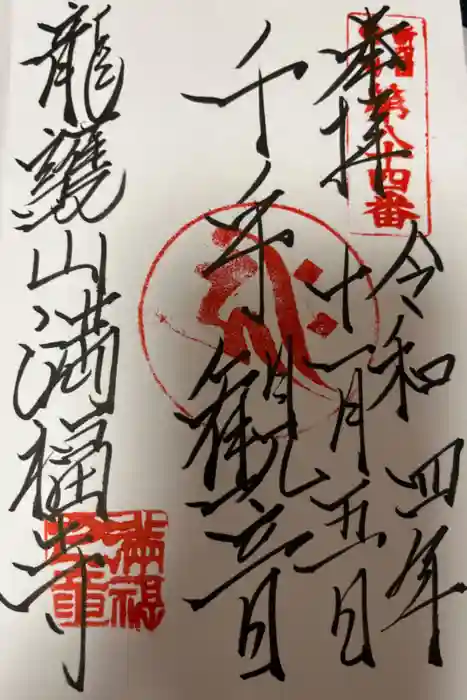 奉拝
第八十四番
令和四年
十一月五日
千手観音
龍護山満福寺